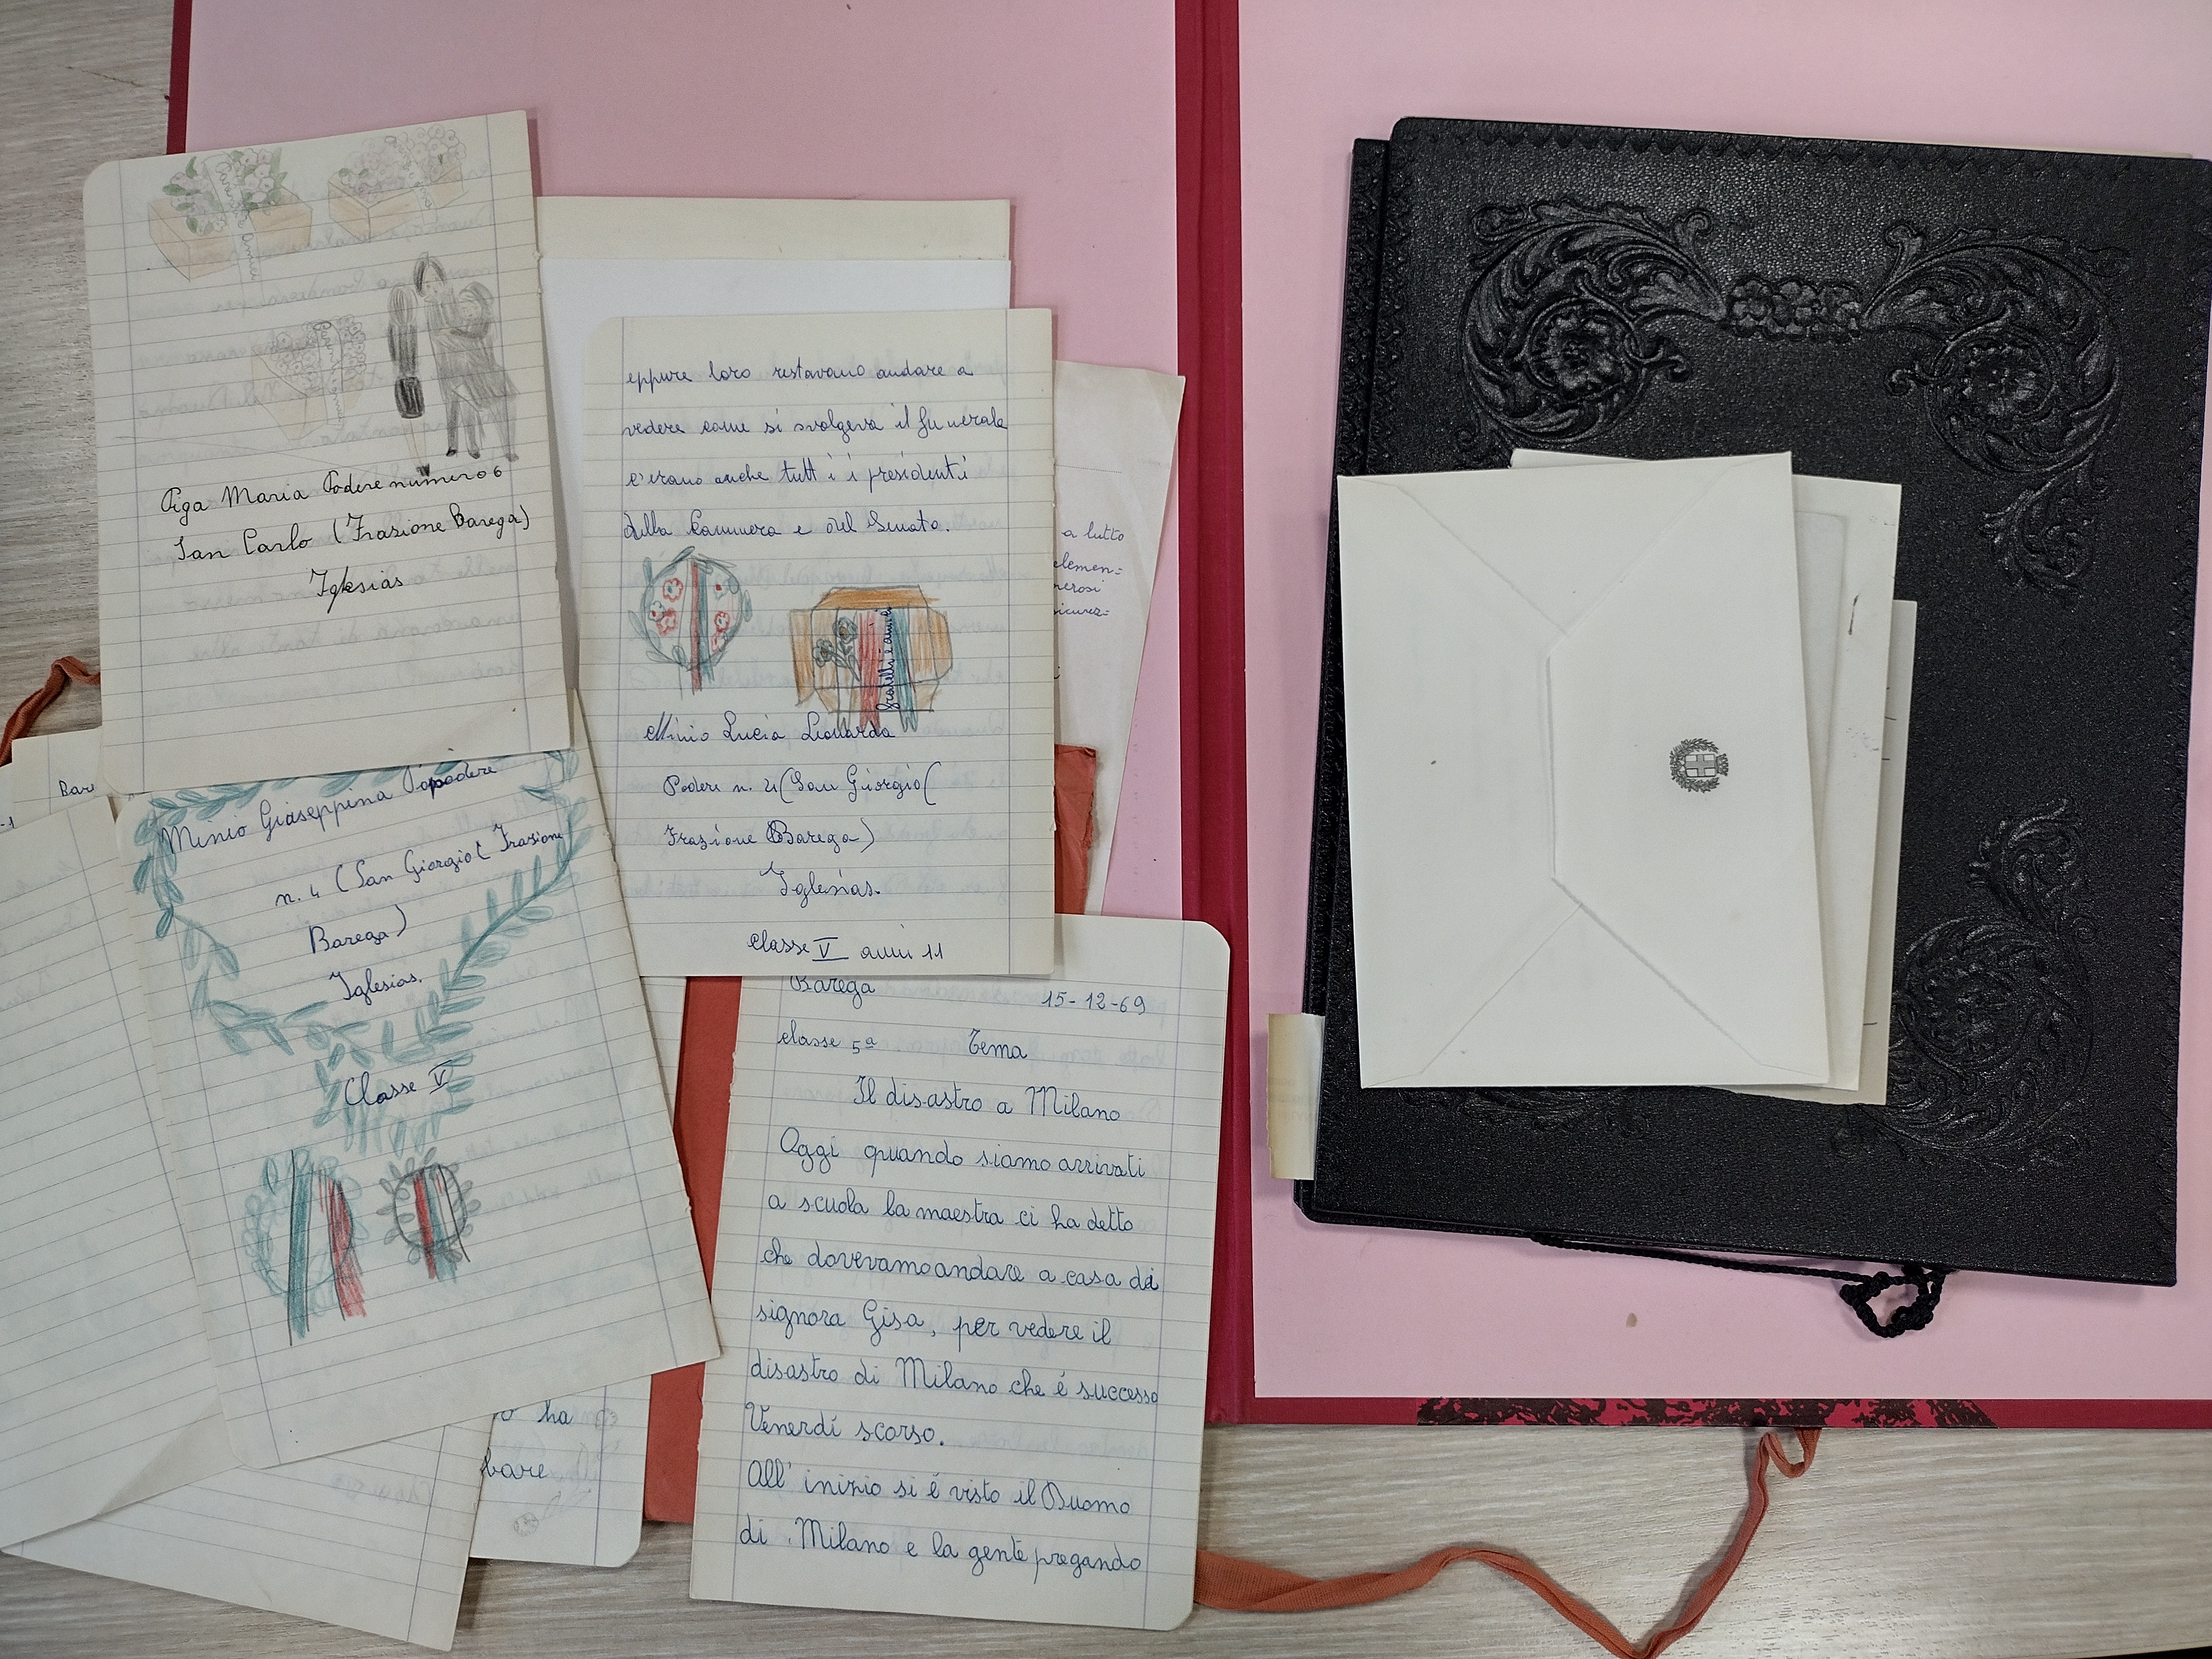 Piga Maria Podere numero 6
San Carlo (Frasione Barega)
Iglesias
Bare
-1
Minio Giuseppina podere
n. 4 (San Giorgio( Frasione
Barega)
Iglesias.
Classe V
ha
bare
eppure loro restavano andare a
vedere come si svolgeva il funerale
c'erano anche tutti i presidenti
della Cammera e del Senato.
fratelli e amici
Minio Lucia Leonarda
Podere n. 4 (San Giorgio(
Frasione Barega)
Iglesias.
Classe V anni 11
a lutto
elemen=
nerosi
sicurez=
Barega 15-12-69
classe 5ª Tema
Il disastro a Milano
Oggi quando siamo arrivati
a scuola la maestra ci ha detto
che dovevamo andare a casa di
signora Gisa, per vedere il
disastro di Milano che é successo
Venerdí scorso.
All' inizio si é visto il Duomo
di Milano e la gente pregando